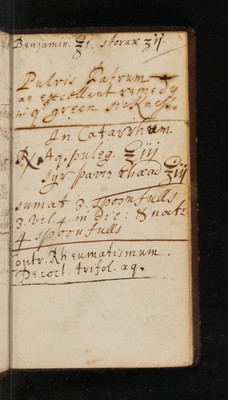 Benjamin. ℥j. storax ʒij.
Pulvis Patrum
an excellent remedy
in ye green sickness.
In Catarrhum
℞ Aq. puleg. ℥iij
Syr. papav. rhœad ℥iij
sumat 3. spoonfulls
3. vel 4 in die: & nocte
4 spoonfulls
contr. Rheumatismum.
Decoct. trifol. aq.